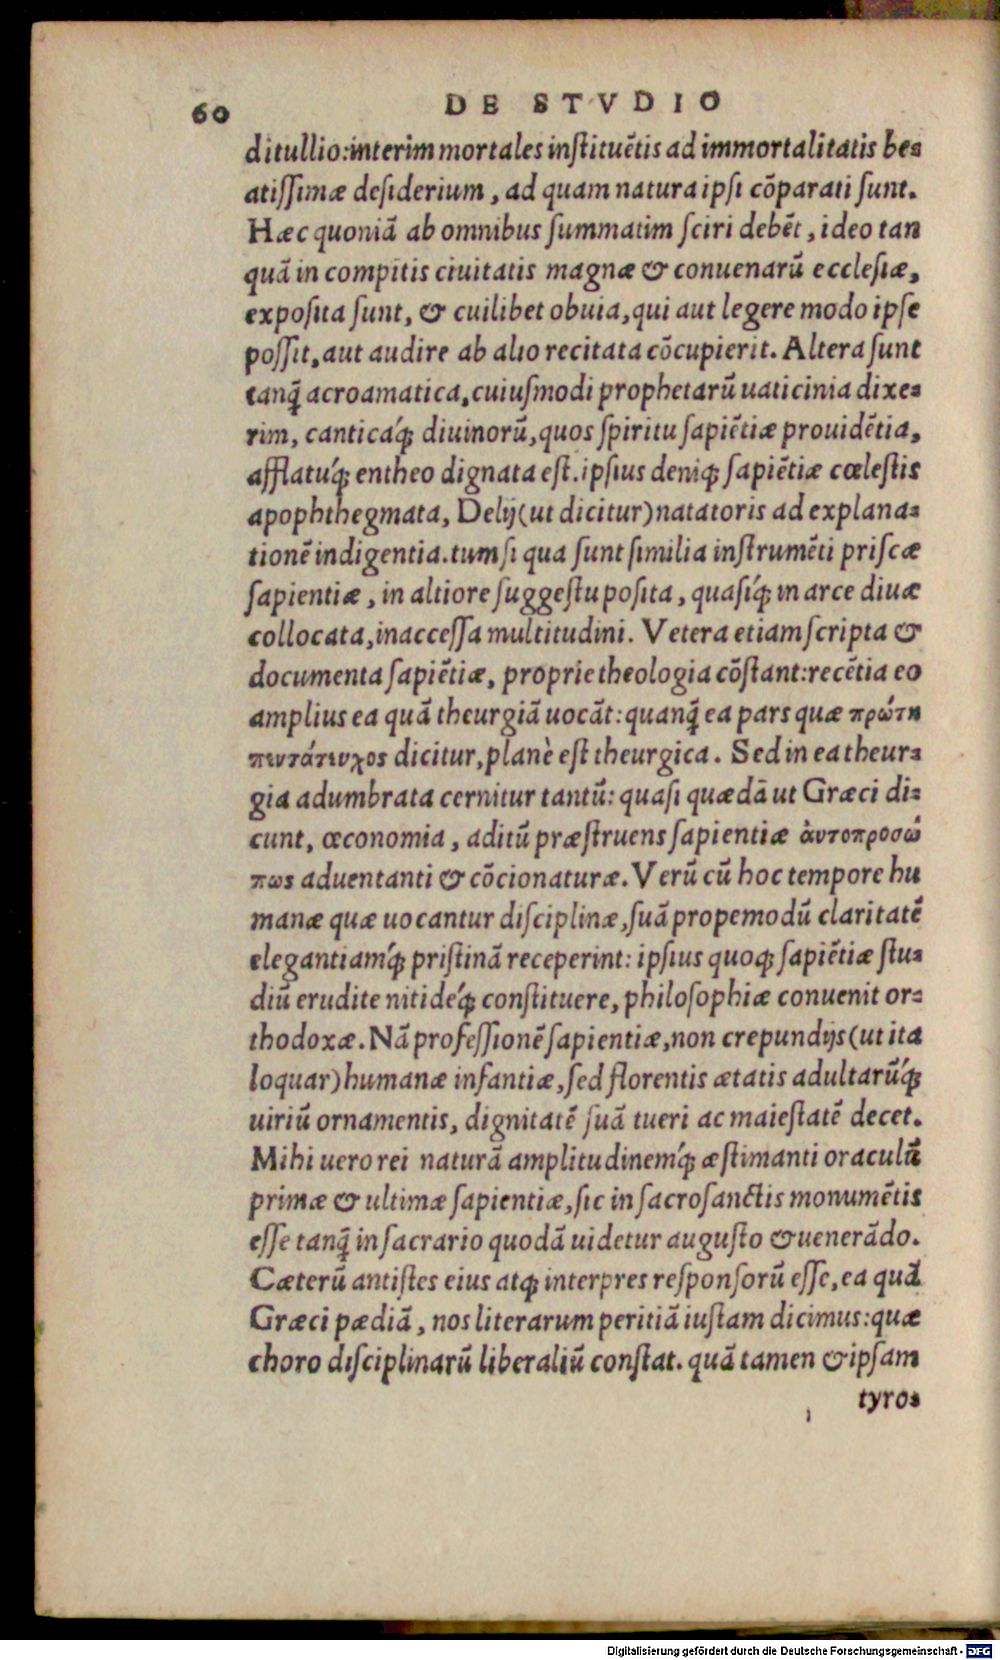 60 DE STVDIO
ditullio:interim mortales inſtituẽtis ad immortalitatis be⸗
atiſſimæ deſiderium, ad quam natura ipſi cõparati ſunt.
Hæc quoniã ab omnibus ſummatim ſciri debẽt, ideo tan
quã in compitis ciuitatis magnæ & conuenarũ eccleſiæ,
expoſita ſunt, & cuilibet obuia, qui aut legere modo ipſe
poſſit, aut audire ab alio recitata cõcupierit. Altera ſunt
tanq̃ acroamatica, cuiuſmodi prophetarũ uaticinia dixe⸗
rim, canticáq; diuinorũ, quos ſpiritu ſapiẽtiæ prouidẽtia,
afflatúq; entheo dignata eſt. ipſius deniq; ſapiẽtiæ cœleſtis
apophthegmata, Delij (ut dicitur) natatoris ad explana⸗
tionẽ indigentia. tum ſi qua ſunt ſimilia inſtrumẽti priſcæ
ſapientiæ, in altiore ſuggeſtu poſita, quaſíq; in arce diuæ
collocata, inacceſſa multitudini. Vetera etiam ſcripta &
documenta ſapiẽtiæ, proprie theologia cõſtant: recẽtia eo
amplius ea quã theurgiã uocãt: quanq̃ ea pars quæ πρώτη
πεντάτευχος dicitur, planè eſt theurgica. Sed in ea theur⸗
gia adumbrata cernitur tantũ: quaſi quædã ut Græci di⸗
cunt, œconomia, aditũ præſtruens ſapientiæ ἀυτοπροσώ
πως aduentanti & cõcionaturæ. Verũ cũ hoc tempore hu
manæ quæ uocantur diſciplinæ, ſuã propemodũ claritatẽ
elegantiamq́; priſtinã receperint: ipſius quoq; ſapiẽtiæ ſtu⸗
diũ erudite nitidéq; conſtituere, philoſophiæ conuenit or⸗
thodoxæ. Nã profeſſionẽ ſapientiæ, non crepundijs (ut ita
loquar) humanæ infantiæ, ſed florentis ætatis adultarũq́;
uiriũ ornamentis, dignitatẽ ſuã tueri ac maieſtatẽ decet.
Mihi uero rei naturã amplitudinemq́; æſtimanti oraculũ
primæ & ultimæ ſapientiæ, ſic in ſacroſanctis monumẽtis
eſſe tanq̃ in ſacrario quodã uidetur auguſto & uenerãdo.
Cæterũ antiſtes eius atq; interpres reſponſorũ eſſe, ea quã
Græci pædiã, nos literarum peritiã iuſtam dicimus: quæ
choro diſciplinarũ liberaliũ conſtat. quã tamen & ipſam
tyro⸗
Digitalisierung gefördert durch die Deutsche Forschungsgemeinschaft - DFG